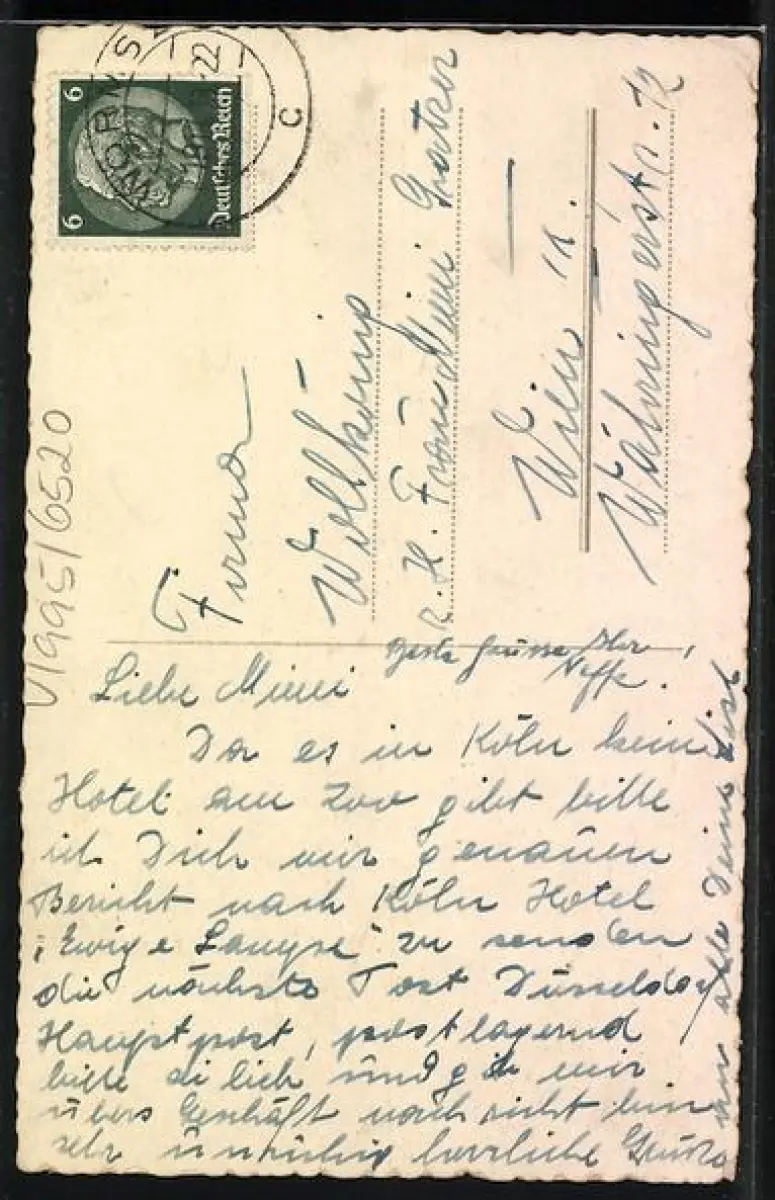 WORMS
22
C
6 6
Deutsches Reich
Firma
Wollkönig
z. H. Frau Mimi Gratzer
Wien IX.
Währingerstr. 12
V1995/6520
Beste Grüsse Ihr
Neffe.
Liebe Mimi
Da es in Köln kein
Hotel am Zoo gibt bitte
ich Dich mir genauen
Bericht nach Köln Hotel
"Ewige Lampe" zu senden
die nächste Post Düsseldorf
Hauptpost, postlagernd
bitte und gib mir
übers Geschäft nachricht bin
sehr unruhig herzliche Grüße
an alle Deine